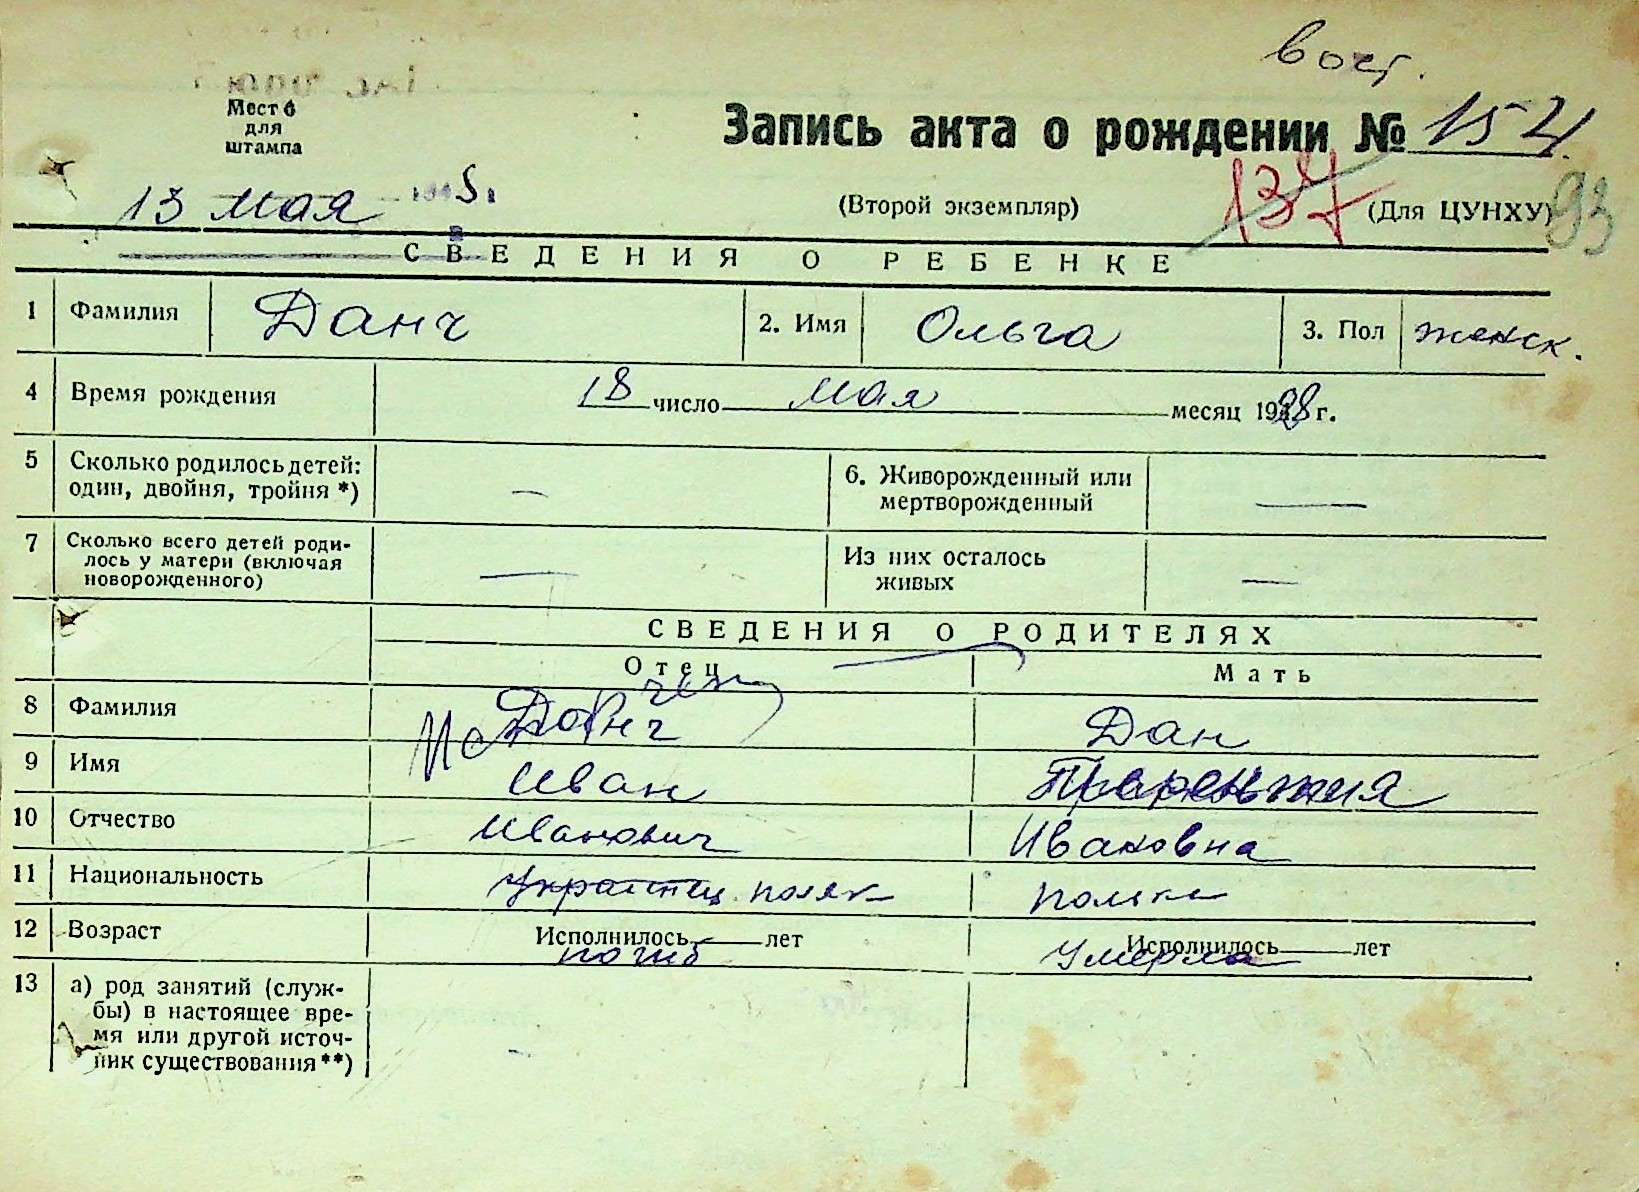 вост.
Место
для
штампа
Запись акта о рождении № 154
13 мая 1945 г.
(Второй экземпляр) 137 (Для ЦУНХУ) 93
СВЕДЕНИЯ О РЕБЕНКЕ
1 Фамилия Данч 2. Имя Ольга 3. Пол женск.
4 Время рождения 18 число мая месяц 1928 г.
5 Сколько родилось детей: один, двойня, тройня *) — 6. Живорожденный или мертворожденный —
7 Сколько всего детей родилось у матери (включая новорожденного) — Из них осталось живых —
СВЕДЕНИЯ О РОДИТЕЛЯХ
Отец Мать
8 Фамилия Данч Дан
9 Имя Иван
10 Отчество Иванович Ивановна
11 Национальность Украинец поляк полька
12 Возраст Исполнилось — лет Исполнилось — лет
погиб Умерла
13 а) род занятий (служ-
бы) в настоящее вре-
мя или другой источ-
ник существования **)